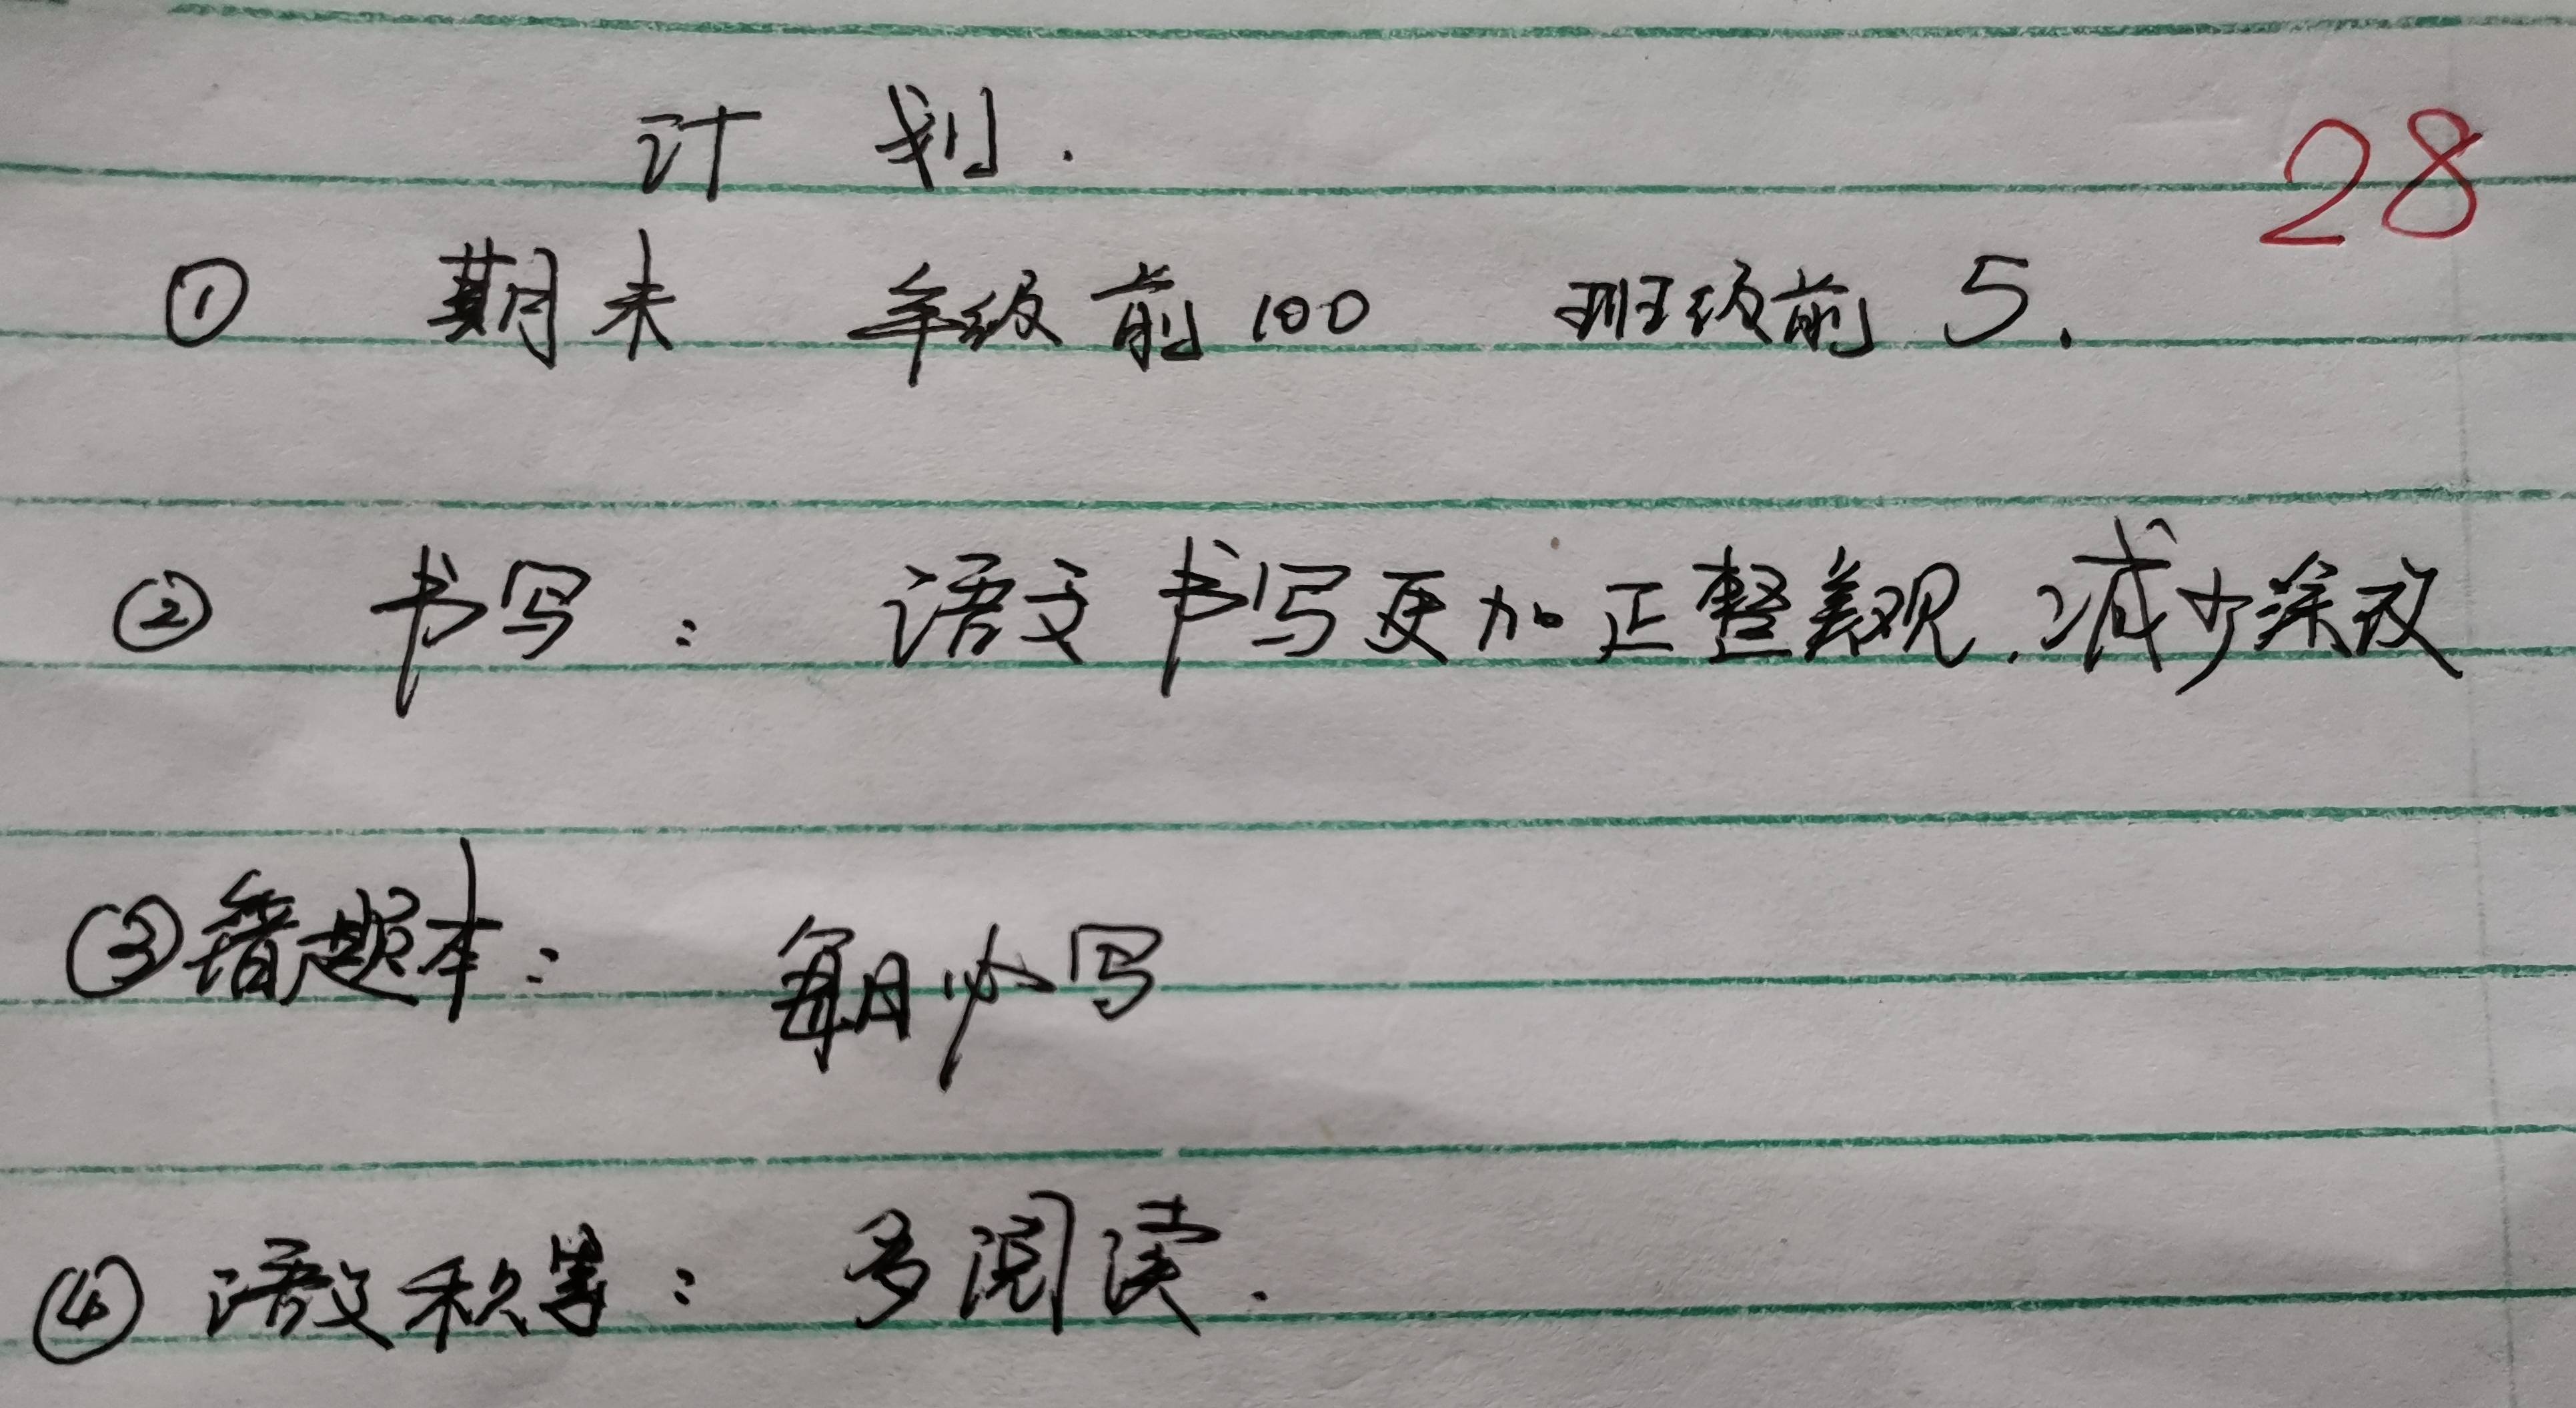 计划.
28
① 期末 年级前100 班级前5.
② 书写: 语文书写更加正整美观.减少涂改
③错题本: 每日必写
④ 语文积累: 多阅读.